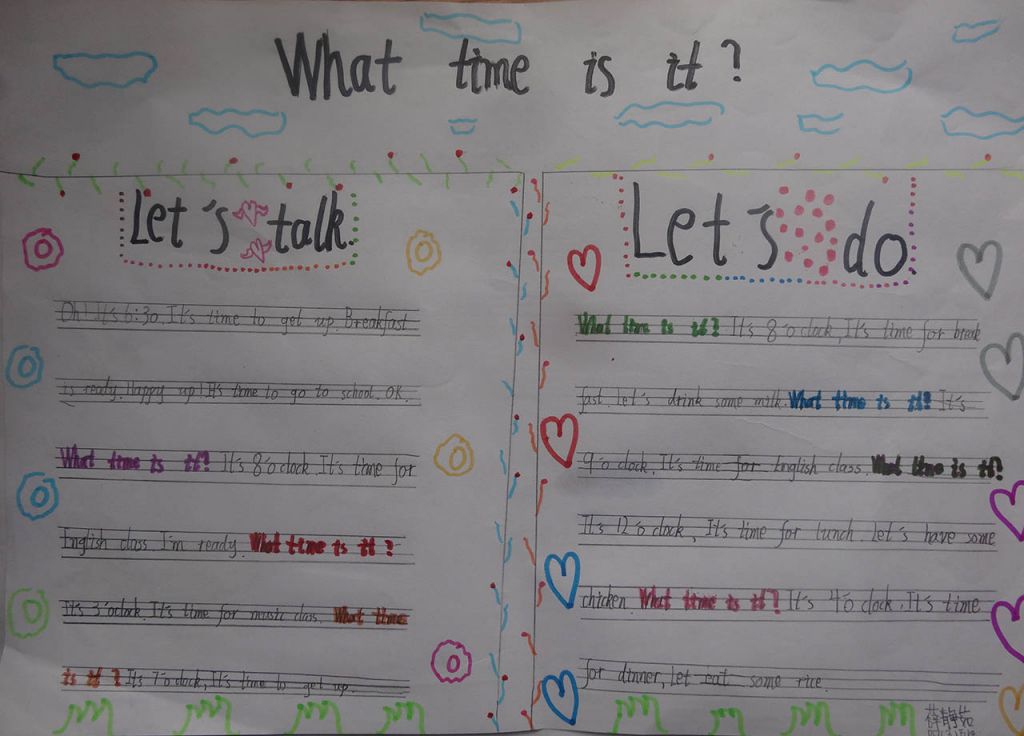 What time is it?
Let's talk.
Oh! It's 6:30. It's time to get up. Breakfast
is ready. Happy up! It's time to go to school. OK.
What time is it? It's 8 'o clock. It's time for
English class. I'm ready. What time is it?
It's 3 'o clock. It's time for music class. What time
is it? It's 7 'o clock, It's time to get up.
Let's do
What time is it? It's 8 'o clock, It's time for break
fast. let's drink some milk. What time is it? It's
9 'o clock. It's time for English class. What time is it?
It's 12 'o clock, It's time for lunch. Let's have some
chicken. What time is it? It's 4 'o clock. It's time
for dinner, let eat some rice.